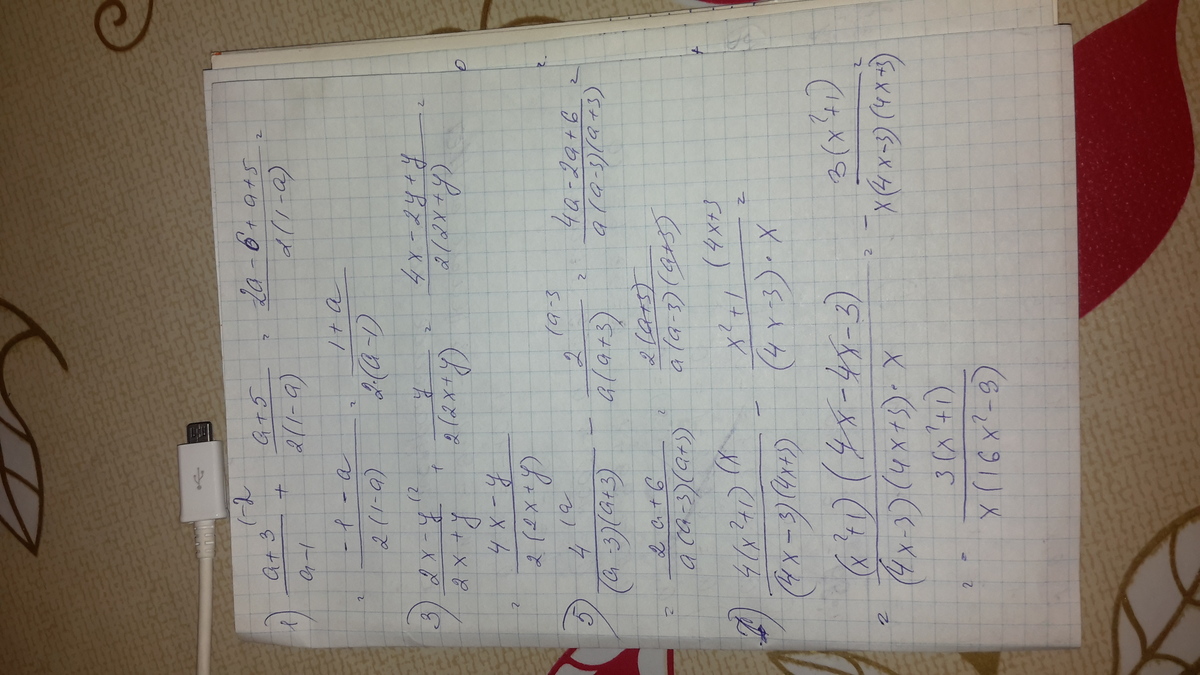 1) (a+3)/(a-1) (-2 + (a+5)/(2(1-a)) = (2a-6+a+5)/(2(1-a)) =
= (-1-a)/(2(1-a)) = (1+a)/(2·(a-1))
3) (2x-y)/(2x+y) (2 + y/(2(2x+y)) = (4x-2y+y)/(2(2x+y)) =
= (4x-y)/(2(2x+y))
5) 4/((a-3)(a+3)) (a - 2/(a(a+3)) (a-3 = (4a-2a+6)/(a(a-3)(a+3)) =
= (2a+6)/(a(a-3)(a+3)) = (2(a+3))/(a(a-3)(a+3))
4(x²+1)/((4x-3)(4x+3)) (x - (x²+1)/((4x-3)·x) (4x+3 =
= ((x²+1)(4x-4x-3))/((4x-3)(4x+3)·x) = - (3(x²+1))/(x(4x-3)(4x+3)) =
= - (3(x²+1))/(x(16x²-9))